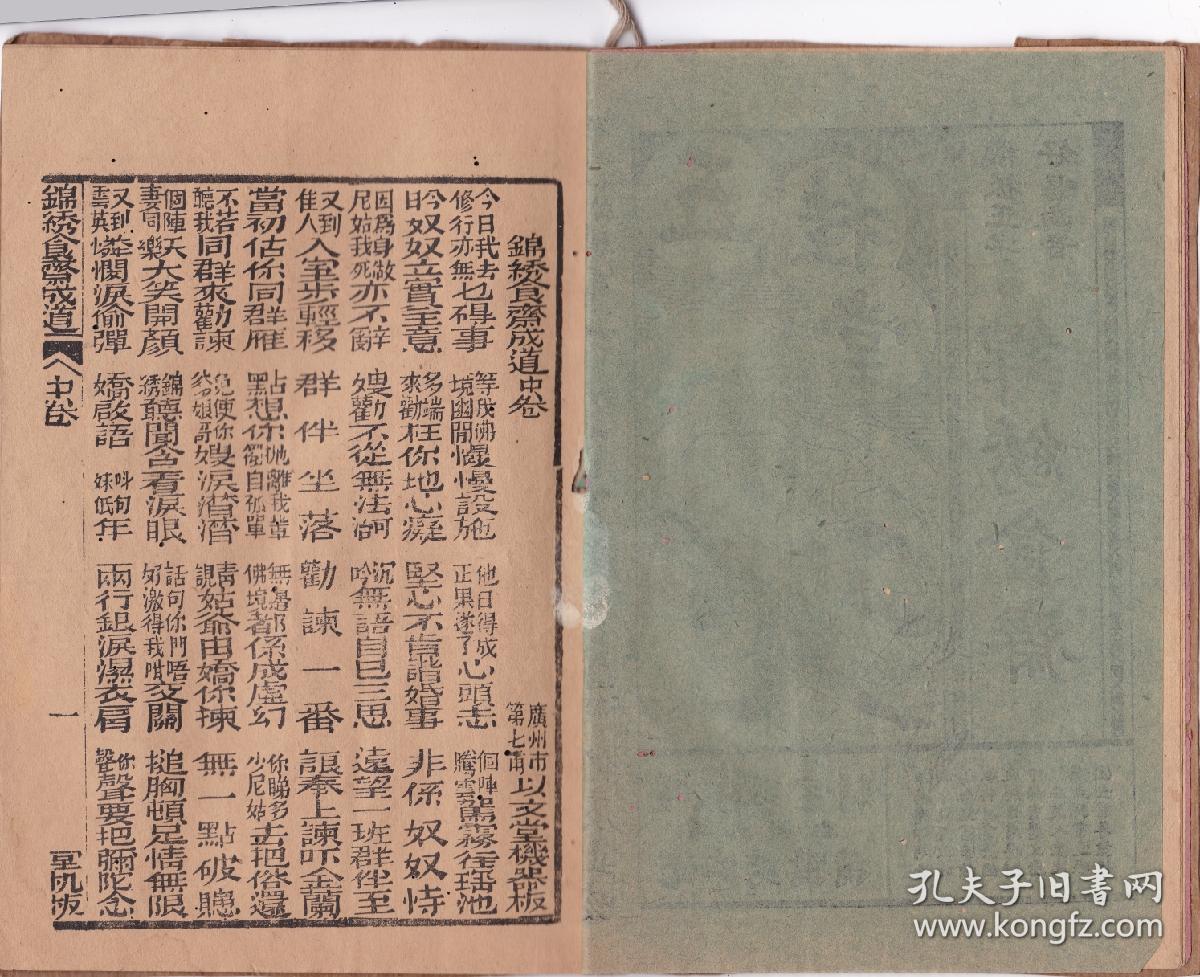 錦綉食齋成道中卷 廣州市第七甫以文堂機器板
今日我去修行亦無乜碍事 等成佛境幽閒慢慢設施 他日得成正果遂了心頭志 個陣騰雲駕霧往瑤池
今日奴奴立實主意 多端來勸枉你地心癡 堅心不肯諧婚事 非係奴奴恃
因爲身做尼姑我死亦不辭 嫂勸不從無法可 沉吟無語自己三思 遠望一班群伴至
又到佳人入室步輕移 群伴坐落 勸諫一番 奉上諫吓金蘭
當初估你同群雁 點想你拋離我輩獨自孤單 無邊佛境都係成虛幻 你睇多少尼姑去把俗還
不若聽我同群來勸諫 免使你爹娘哥嫂淚潸潸 靚姑爺由嬌你揀 無一點破綻
個陣夫妻同樂大笑開顏 錦綉聽聞含着淚眼 話句你們唔好激得我咁交關 搥胸頓足情無限
又到雲英憐憫淚偷彈 嬌啟語 叫句妹低年 兩行銀淚濕衣肩 你聲聲要把彌陀念
錦綉食齋成道 中卷 一 机板
孔夫子旧书网
www.kongfz.com